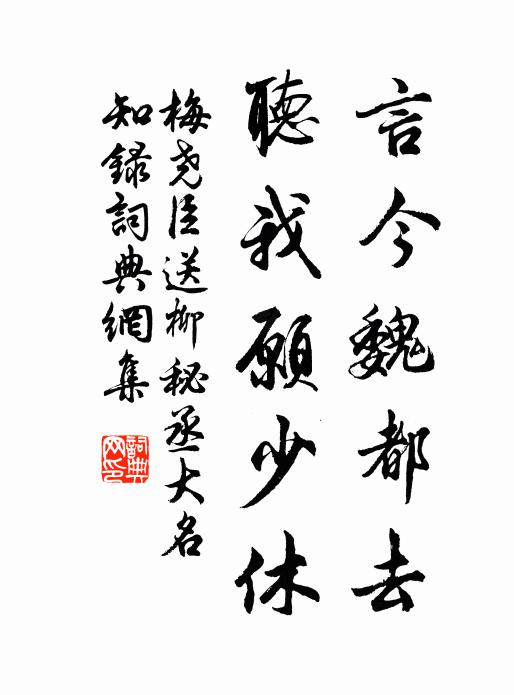 言今魏都去
聽我願少休
梅堯臣送柳秘丞大名
知錄詞典網集
詞典网印